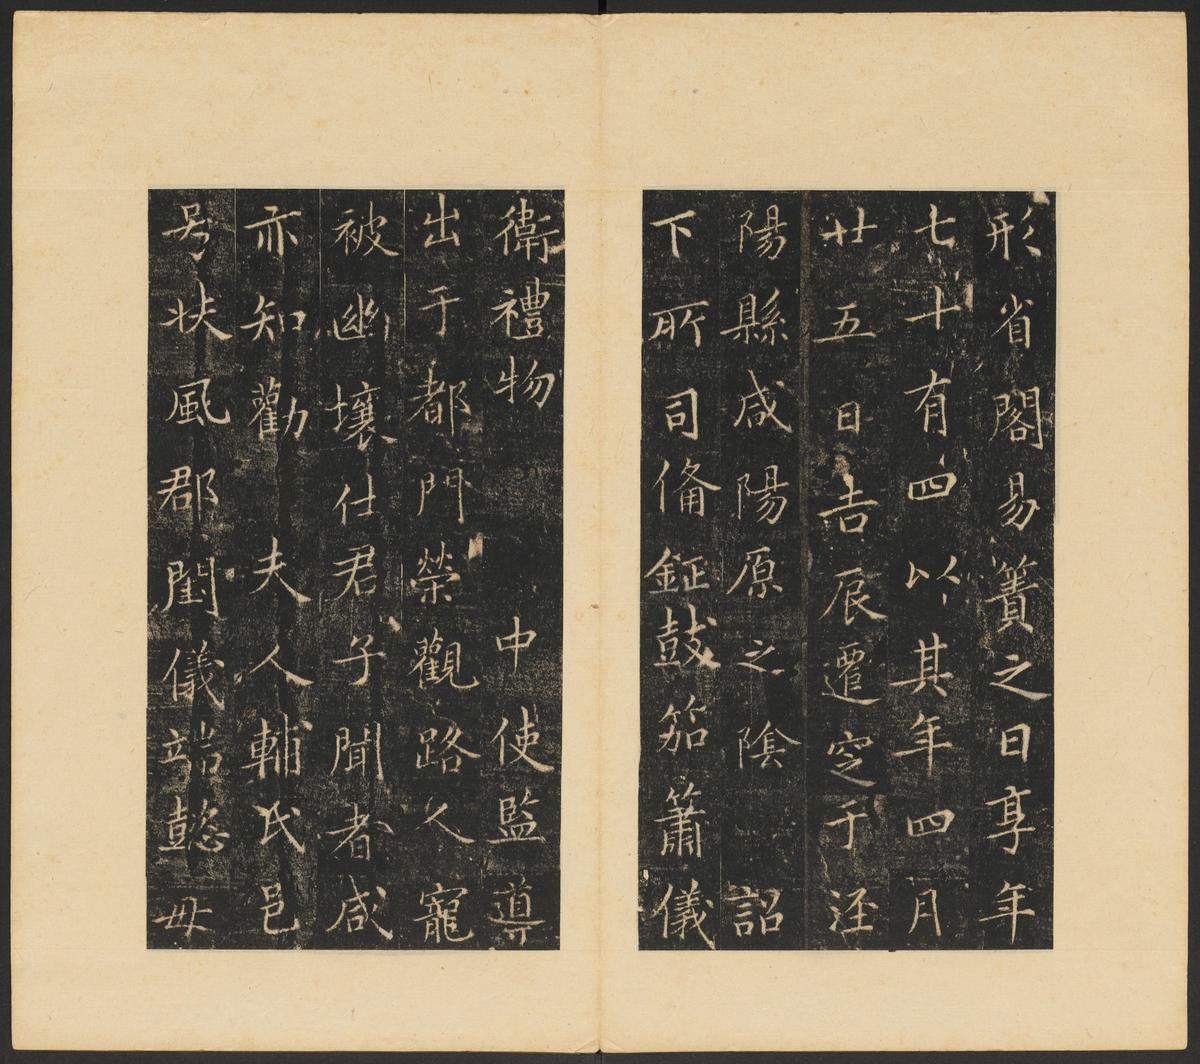 形省閣易簀之日享年
七十有四以其年四月
廿五日吉辰遷窆于涇
陽縣咸陽原之陰 詔
下所司俻鉦鼓笳簫儀
衛禮物 中使監導
出于都門榮觀路人寵
被幽壤仕君子聞者咸
亦知勸 夫人輔氏邑
号扶風郡閨儀喆懿毋